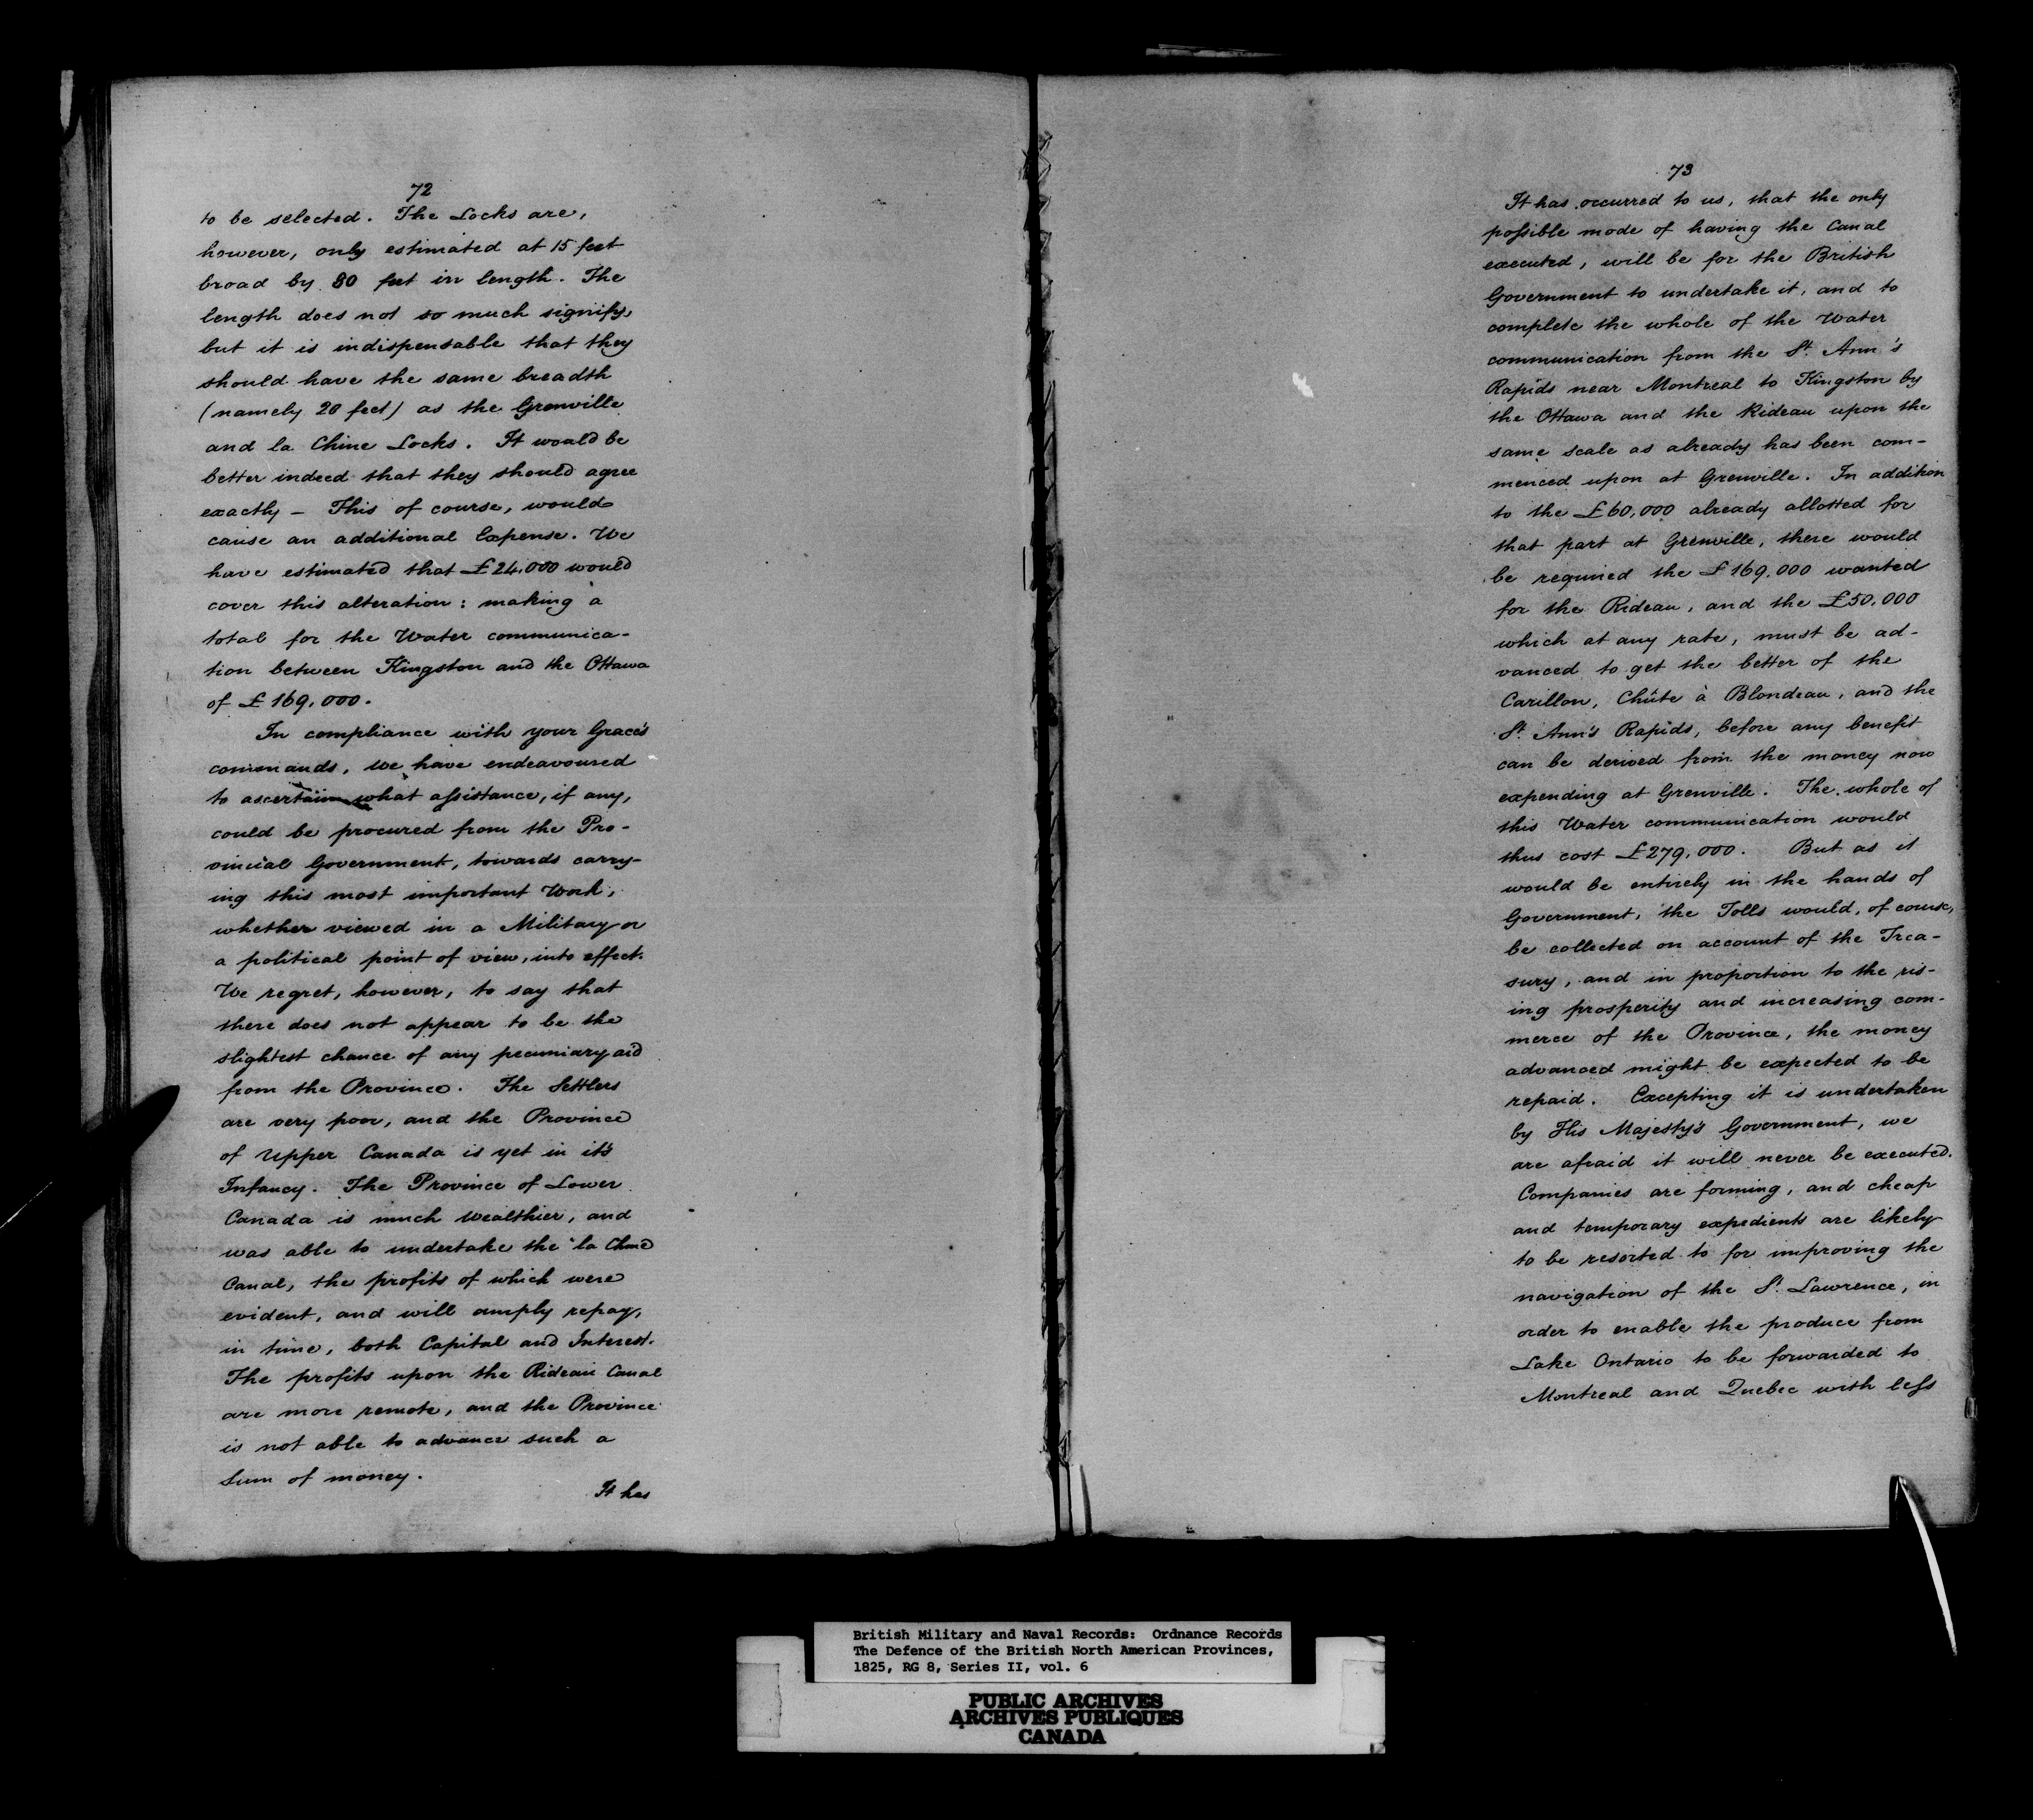 72
to be selected. The Locks are,
however, only estimated at 15 feet
broad by 80 feet in length. The
length does not so much signify,
but it is indispensable that they
should have the same breadth
(namely 20 feet) as the Grenville
and la Chine Locks. It would be
better indeed that they should agree
exactly – This of course, would
cause an additional Expense. We
have estimated that £24,000 would
cover this alteration: making a
total for the Water communica-
tion between Kingston and the Ottawa
of £169,000.
In compliance with your Grace's
commands, We have endeavoured
to ascertain what assistance, if any,
could be procured from the Pro-
vincial Government, towards carry-
ing this most important Work,
whether viewed in a Military or
a political point of view, into effect.
We regret, however, to say that
there does not appear to be the
slightest chance of any pecuniary aid
from the Province. The Settlers
are very poor, and the Province
of Upper Canada is yet in it's
Infancy. The Province of Lower
Canada is much Wealthier, and
was able to undertake the la Chine
Canal, the profits of which were
evident, and will amply repay,
in time, both Capital and Interest.
The profits upon the Rideau Canal
are more remote, and the Province
is not able to advance such a
Sum of money.
It has
73
It has occurred to us, that the only
possible mode of having the Canal
executed, will be for the British
Government to undertake it, and to
complete the whole of the Water
communication from the St. Ann's
Rapids near Montreal to Kingston by
the Ottawa and the Rideau upon the
same scale as already has been com-
menced upon at Grenville. In addition
to the £60,000 already allotted for
that part at Grenville, there would
be required the £169,000 wanted
for the Rideau, and the £50,000
which at any rate, must be ad-
vanced to get the better of the
Carillon, Chûte à Blondeau, and the
St. Ann's Rapids, before any benefit
can be derived from the money now
expending at Grenville. The whole of
this Water communication would
thus cost £279,000. But as it
would be entirely in the hands of
Government, the Tolls would, of course,
be collected on account of the Trea-
sury, and in proportion to the ris-
ing prosperity and increasing com-
merce of the Province, the money
advanced might be expected to be
repaid. Excepting it is undertaken
by His Majesty's Government, we
are afraid it will never be executed.
Companies are forming, and cheap
and temporary expedients are likely
to be resorted to for improving the
navigation of the St. Lawrence, in
order to enable the produce from
Lake Ontario to be forwarded to
Montreal and Quebec with less
British Military and Naval Records: Ordnance Records
The Defence of the British North American Provinces,
1825, RG 8, Series II, vol. 6
PUBLIC ARCHIVES
ARCHIVES PUBLIQUES
CANADA